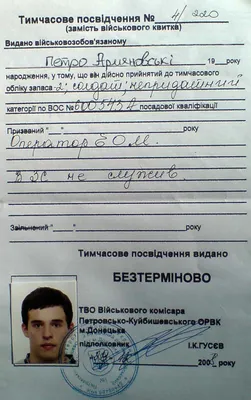 Тимчасове посвідчення № 4/220
(замість військового квитка)
Видано військовозобов'язаному
Петро 19 року
народження, у тому, що він дійсно прийнятий до тимчасового
обліку запаса - 2; солдат; непридатний
категорії по ВОС № посадової кваліфікації
Призваний " " року
Оператор ЕОМ.
В ЗС не служив.
Звільнений " " року
Тимчасове посвідчення видано
БЕЗТЕРМІНОВО
ТВО Військового комісара
Петровсько-Куйбишевського ОРВК
м.Донецька
підполковник І.К.ГУСЄВ
200 року